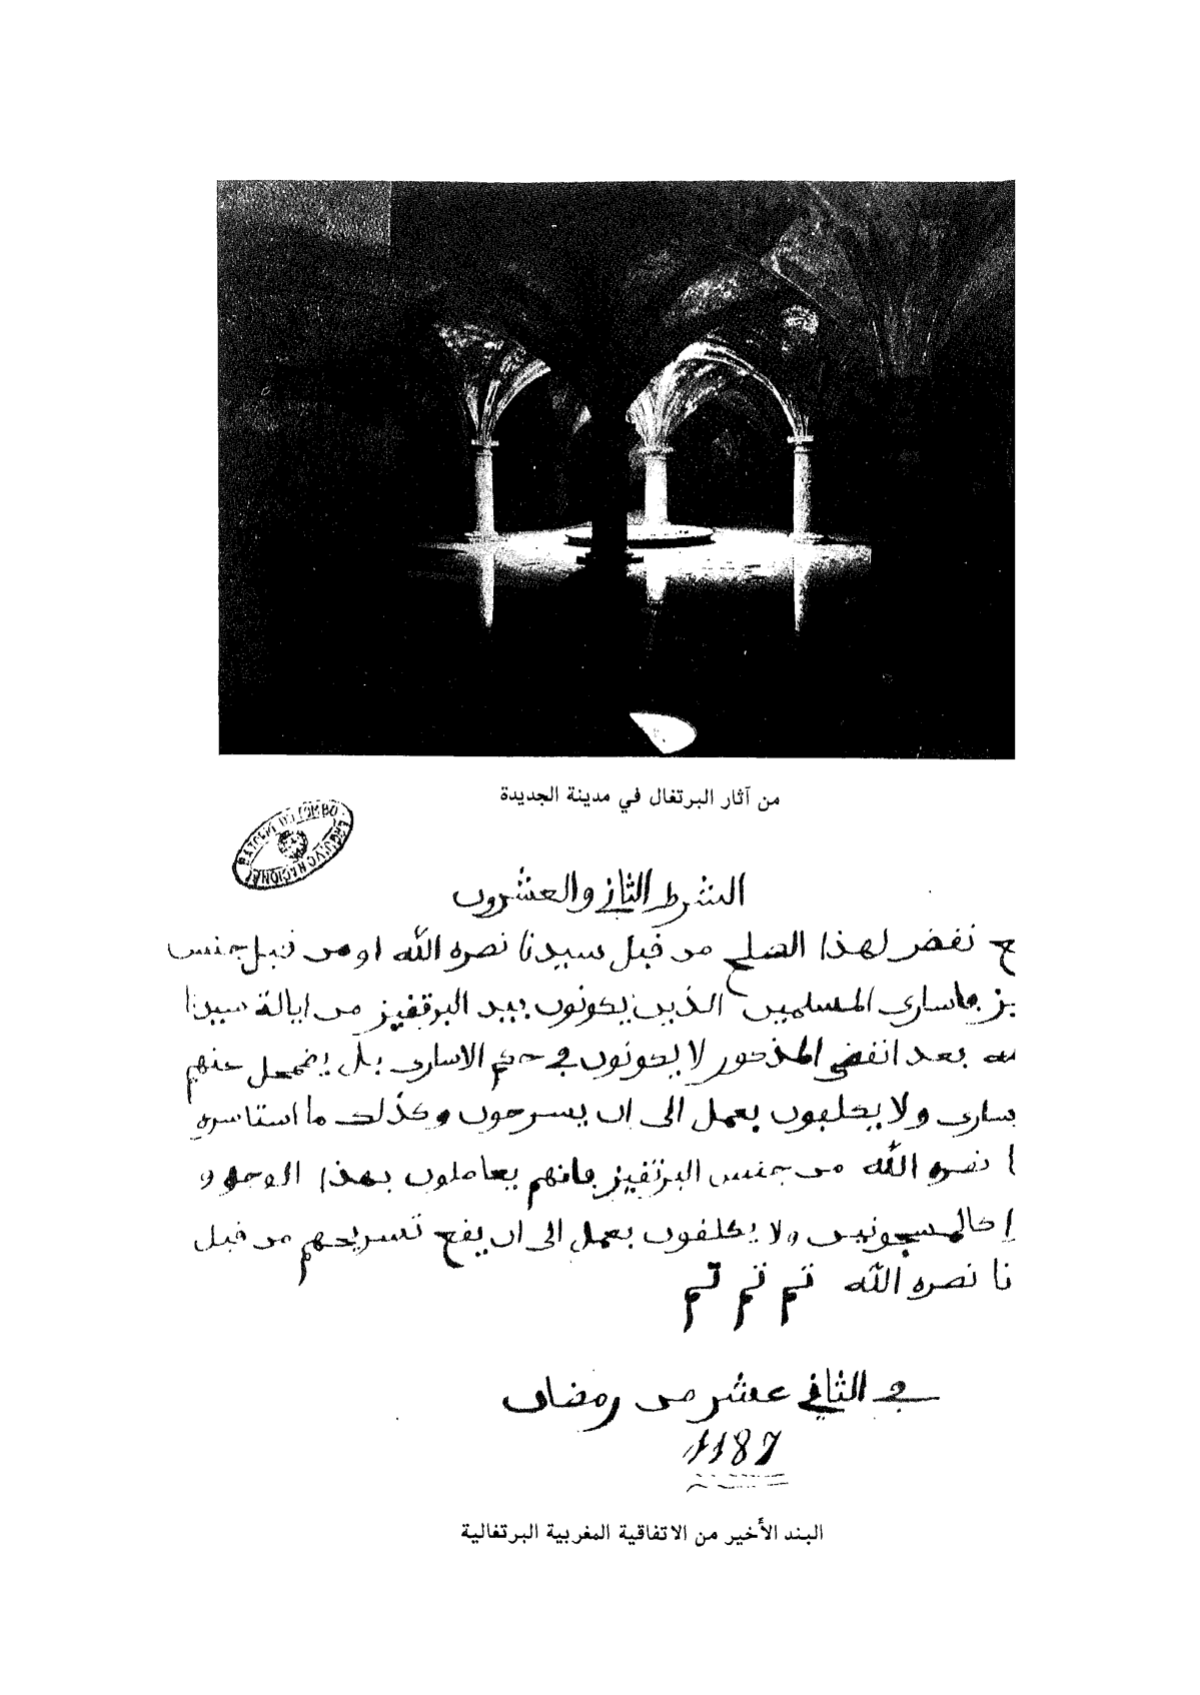 من آثار البرتغال في مدينة الجديدة
الشرط الثاني والعشرون
نقض لهذا الصلح من قبل سيدنا نصره الله او من قبل جنس
فاسارى المسلمين الذين يكونون بيد البرتقيز من ايالة سيدنا
بعد انقضى المذكور لا يكونون في حكم الاسارى بل يضمحل عنهم
ولا يكلفون بعمل الى ان يسرحون وكذلك ما استاسره
نصره الله من جنس البرتقيز فانهم يعاملون بهذا الوجه و
كالمسجونين ولا يكلفون بعمل الى ان يقع تسريحهم من قبل
نا نصره الله تم تم تم
في الثاني عشر من رمضان
1187
البند الأخير من الاتفاقية المغربية البرتغالية